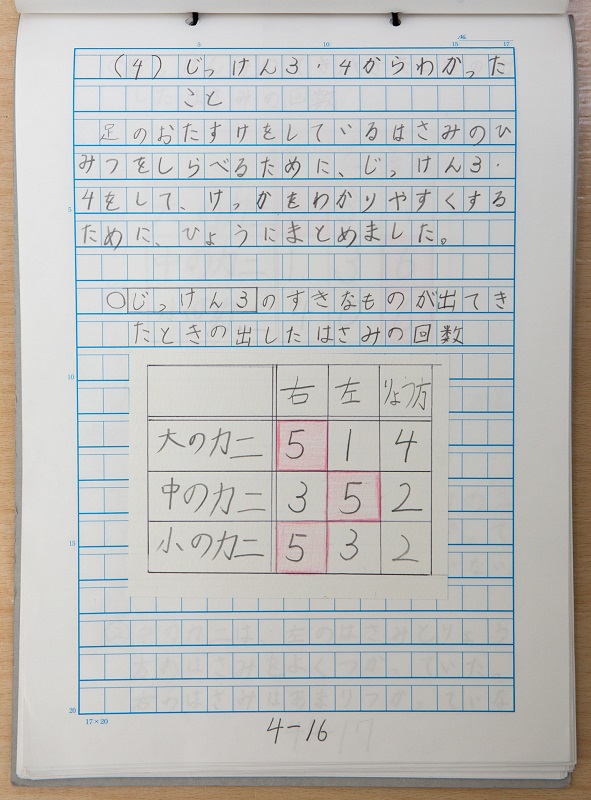 5 10 15 17
(4) じっけん3・4からわかった
こと
足のおたすけをしているはさみのひ
みつをしらべるために、じっけん3・
4をして、けっかをわかりやすくする
ために、ひょうにまとめました。
5
○じっけん3のすきなものが出てき
たときの出したはさみの回数
10
右 左 りょう方
大のカニ 5 1 4
中のカニ 3 5 2
小のカニ 5 3 2
15
20
17×20
4-16